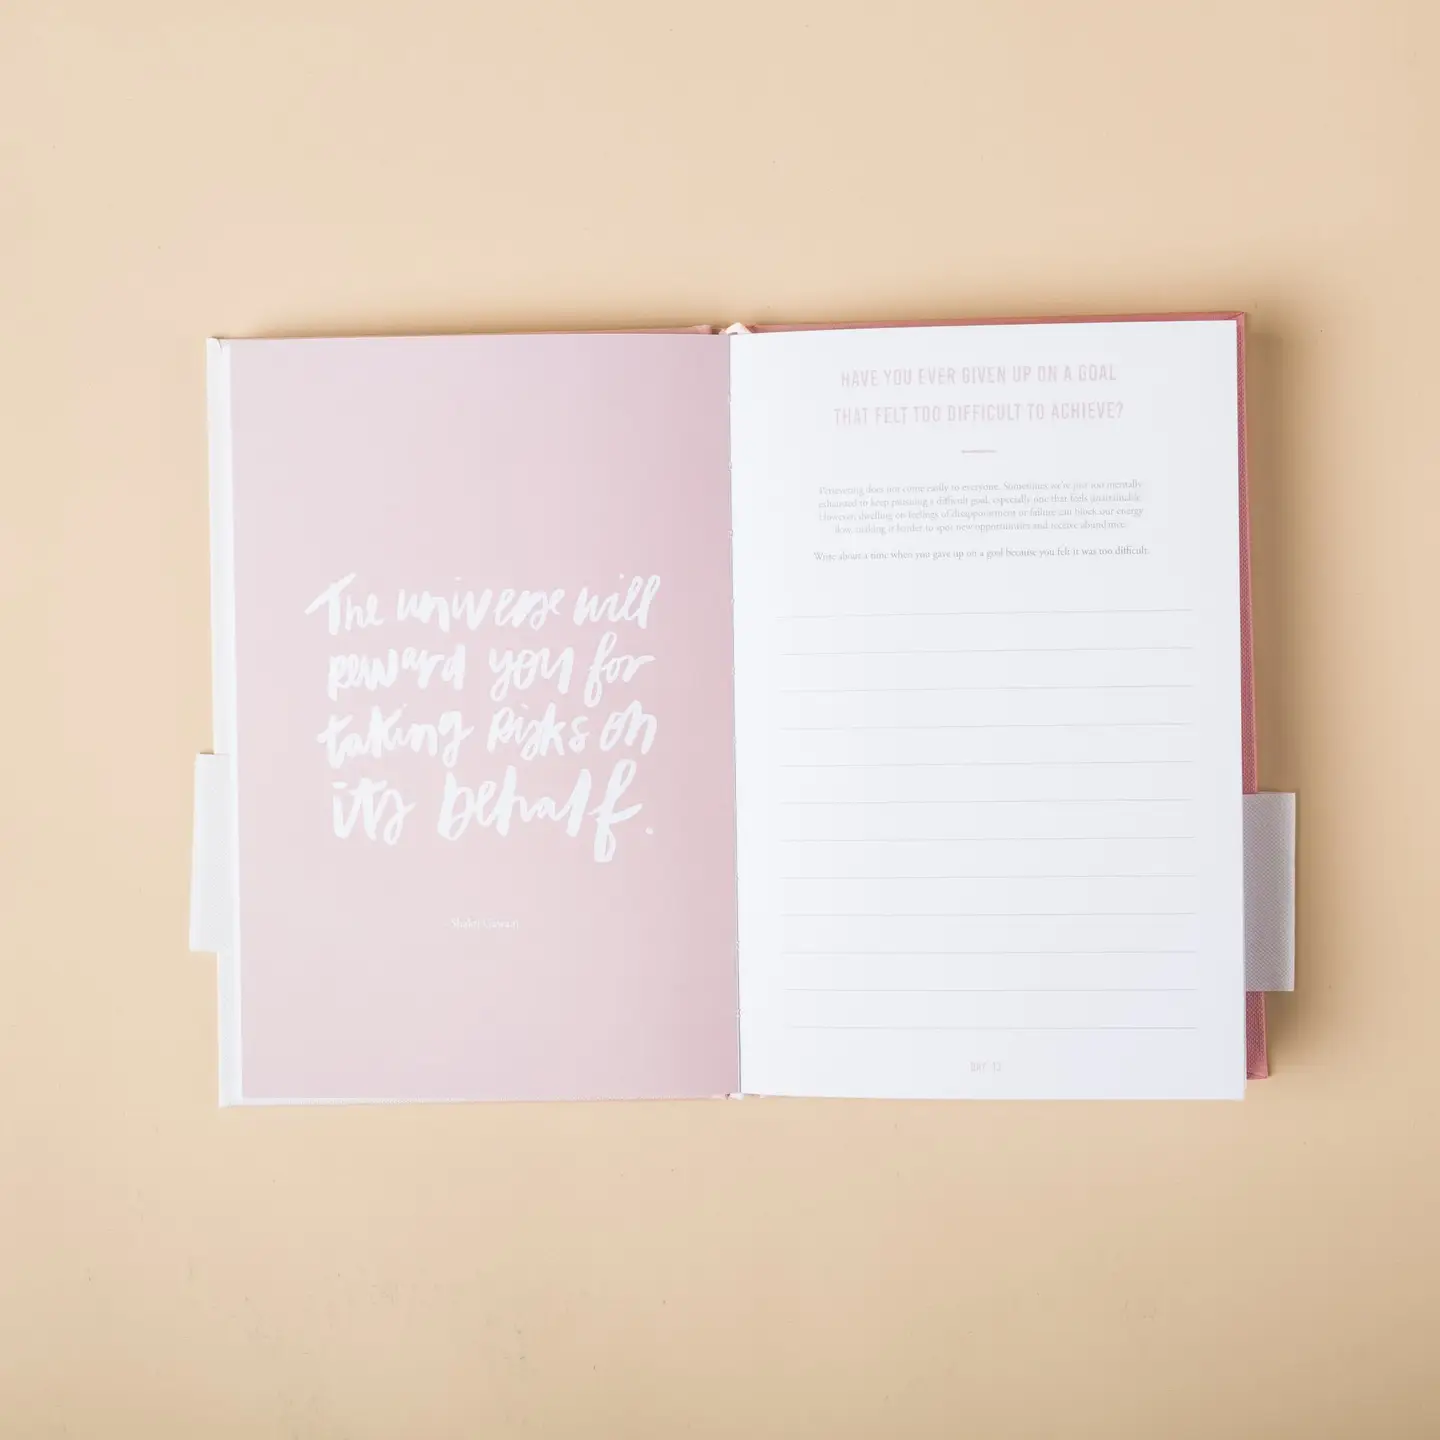 The universe will
reward you for
taking risks on
its behalf.
- Shakti Gawain
HAVE YOU EVER GIVEN UP ON A GOAL
THAT FELT TOO DIFFICULT TO ACHIEVE?
Persevering does not come easily to everyone. Sometimes we're just too mentally
exhausted to keep pursuing a difficult goal, especially one that feels unattainable.
However, dwelling on feelings of disappointment or failure can block our energy
flow, making it harder to spot new opportunities and receive abundance.
Write about a time when you gave up on a goal because you felt it was too difficult.
DAY